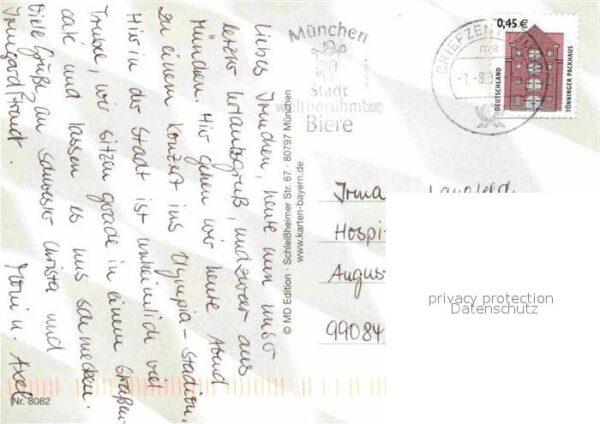 Liebes Irmchen, heute nun unser
letzter Urlaubsgruß, und zwar aus
München. Hier gehen wir heute Abend
zu einem Konzert ins Olympia-Stadion.
Hier in der Stadt ist unheimlich viel
Trubel, wir sitzen grade in einem Straßen-
café und lassen es uns schmecken.
Viele Grüße an Schwester Christa und
Irmgard
Moni u. Axel
Nr. 8082
© MD Edition · Schleißheimer Str. 67 · 80797 München
www.karten-bayern.de
München
Stadt
weltberühmter
Biere
BRIEFZEN
0,45 €
DEUTSCHLAND
TÖNNINGER PACKHAUS
Irma
Hospi
Augus
99084
privacy protection
Datenschutz